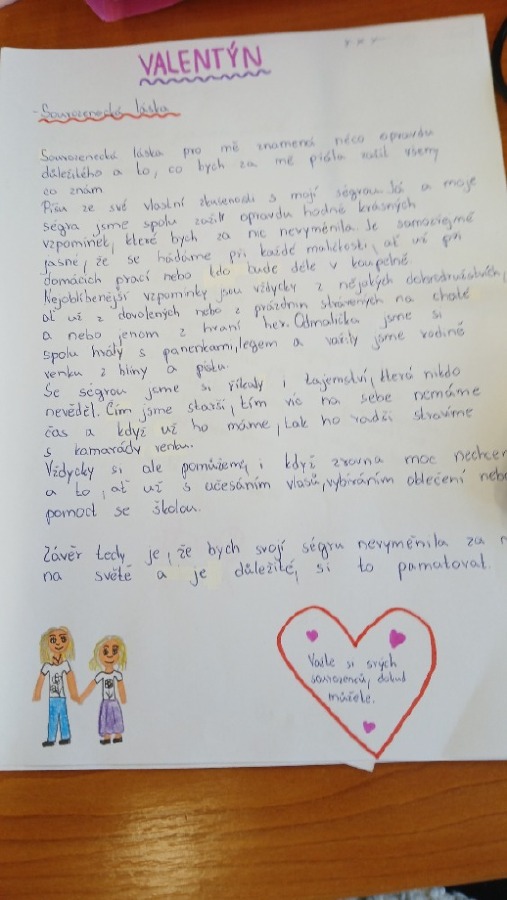 VALENTÝN
- Sourozenecká láska
Sourozenecká láska pro mě znamená něco opravdu
důležitého a to, co bych za mě přála zažít všemy
co znám
Píšu ze své vlastní zkušenosti s mojí ségrou. Já a moje
ségra jsme spolu zažily opravdu hodně krásných
vzpomínek, které bych za nic nevyměnila. Je samozřejmě
jasné, že se hádáme při každé maličkosti, ať už při
domácích prací nebo kdo bude déle v koupelně.
Nejoblíbenější vzpomínky jsou vždycky z nějakých dobrodružstvích,
ať už z dovolených nebo z prázdnin strávených na chatě
a nebo jenom z hraní her. Odmalička jsme si
spolu hrály s panenkami, legem a vařily jsme rodině
venku z hlíny a písku.
Se ségrou jsme si říkaly i tajemství, která nikdo
nevěděl. Čím jsme starší, tím víc na sebe nemáme
čas a když už ho máme, tak ho radši strávíme
s kamarády venku.
Vždycky si ale pomůžeme, i když zrovna moc nechcem
a to, ať už s učesáním vlasů, vybíráním oblečení nebo
pomoct se školou.
Závěr tedy je, že bych svojí ségru nevyměnila za n
na světě a je důležité, si to pamatovat.
Važte si svých
sourozenců, dokud
můžete.